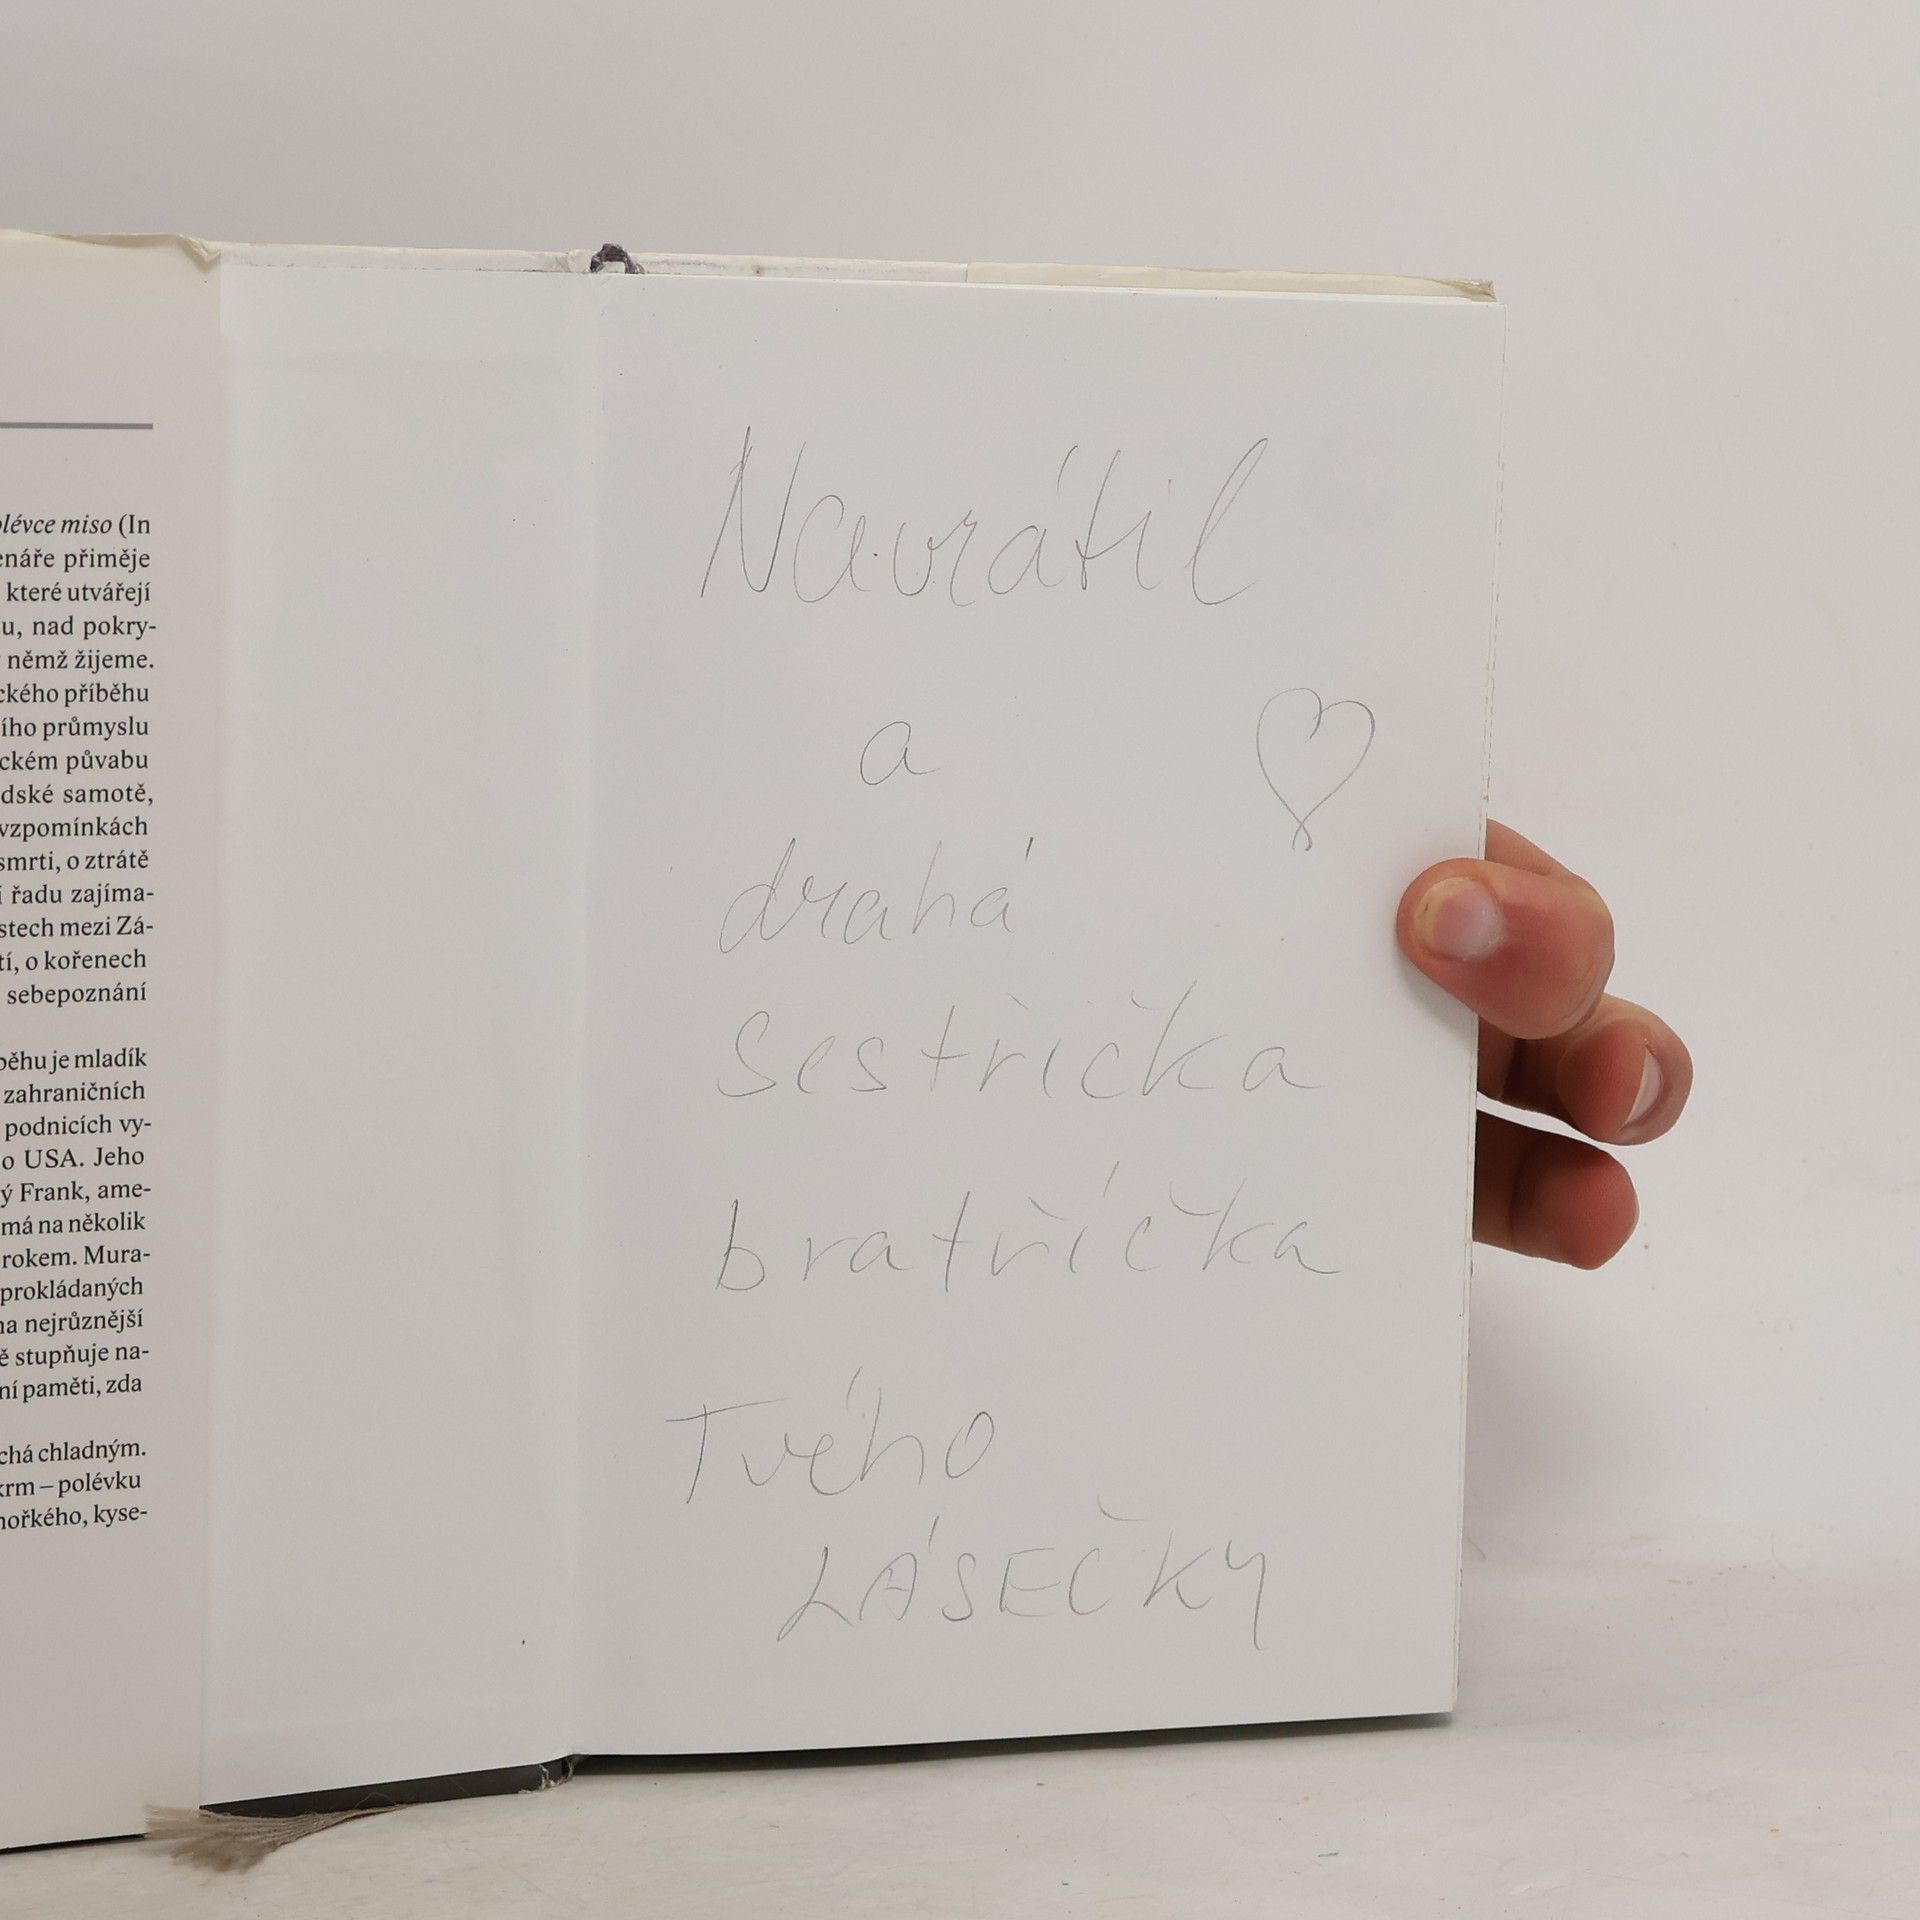 olévce miso (In
enáře přiměje
které utvářejí
u, nad pokry-
němž žijeme.
ckého příběhu
ího průmyslu
ckém půvabu
dské samotě,
vzpomínkách
smrti, o ztrátě
í řadu zajíma-
stech mezi Zá-
tí, o kořenech
sebepoznání
běhu je mladík
zahraničních
podnicích vy-
o USA. Jeho
ý Frank, ame-
má na několik
rokem. Mura-
prokládaných
na nejrůznější
ě stupňuje na-
ní paměti, zda
chá chladným.
krm – polévku
hořkého, kyse-
Navrátil
a
drahá
sestřička
bratříčka
Tvého
LÁSEČKY